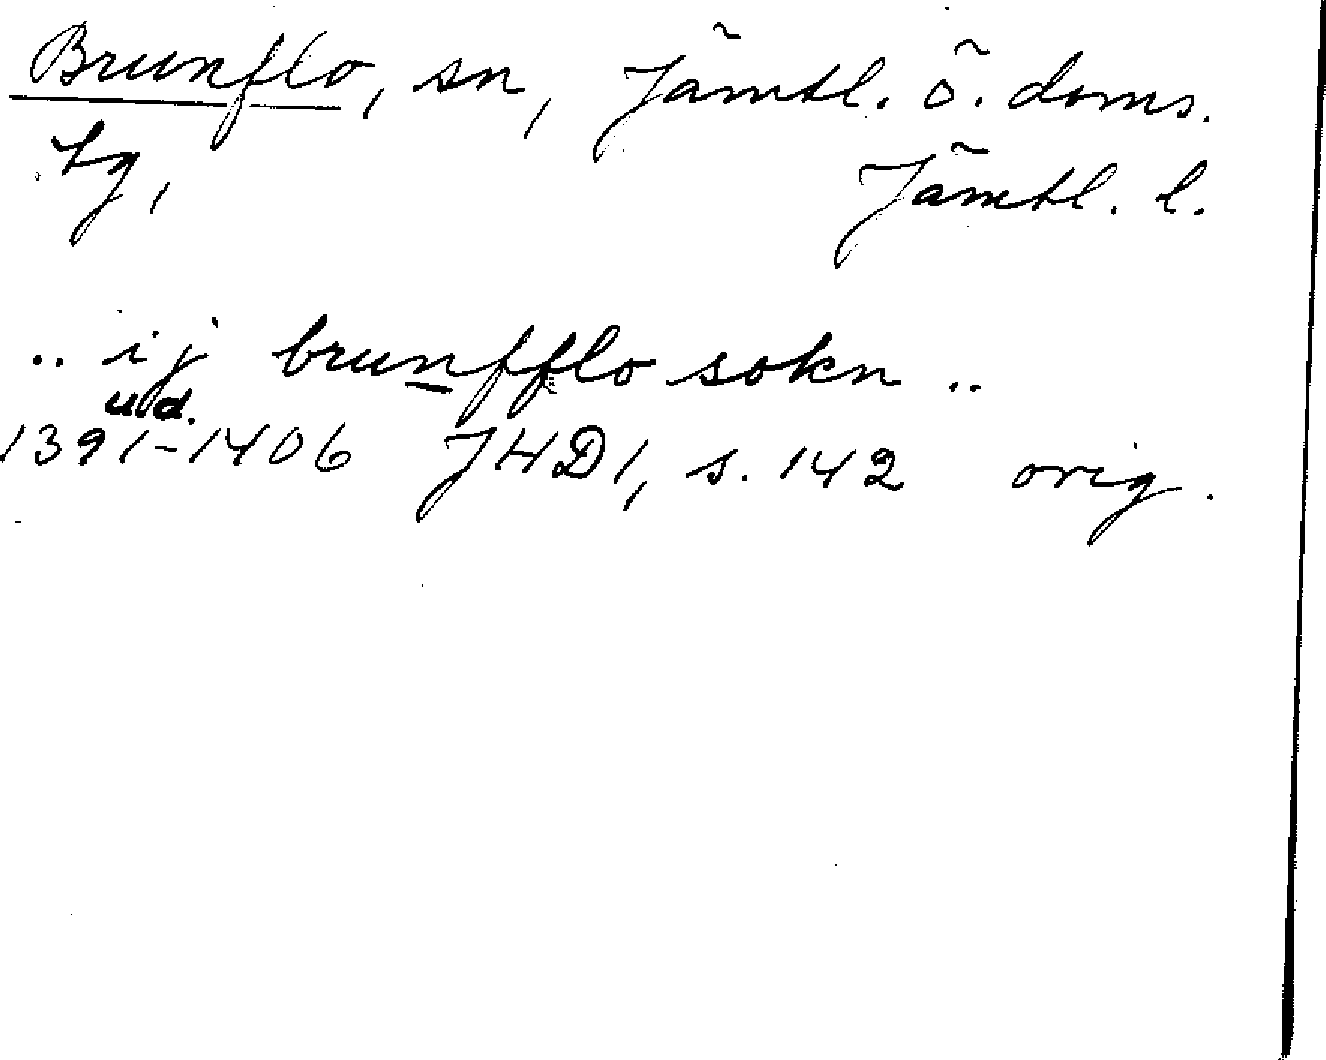 Brunflo, sn, Jämtl. ö. doms.
tg, Jämtl. l.
.. ij brunfflo sokn ..
u.d.
1391-1406 JHD1, s. 142 orig.